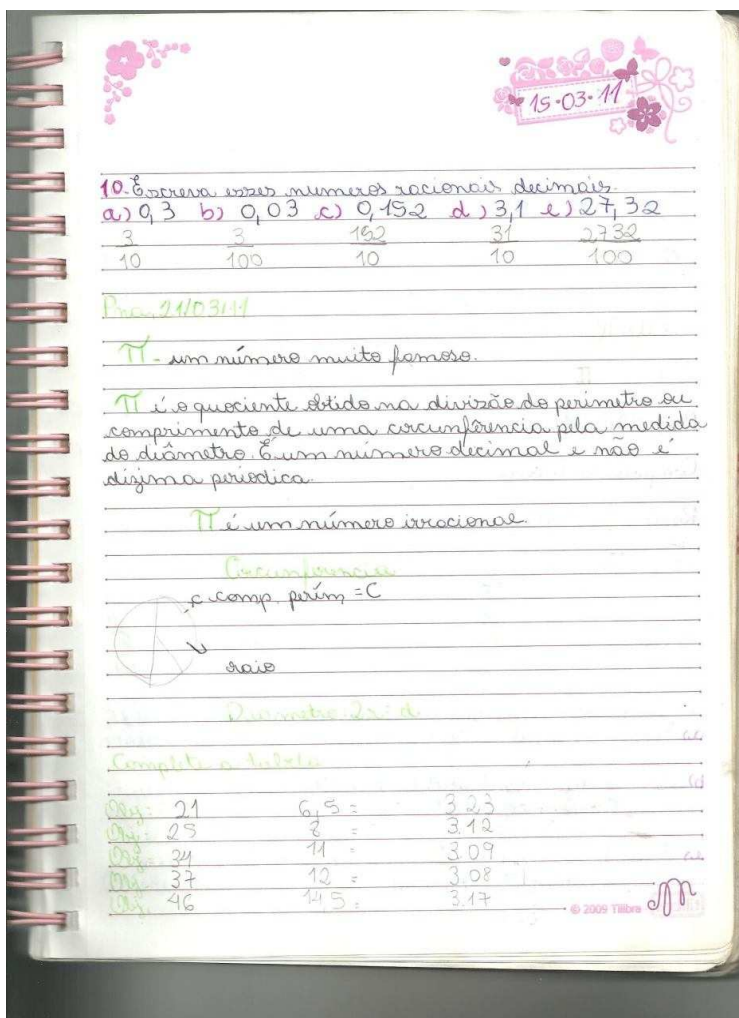 15.03.11
10. Escreva esses numeros racionais decimais.
a) 0,3 b) 0,03 c) 0,152 d) 3,1 e) 27,32
3 3 152 31 2732
10 100 10 10 100
Pna, 21/03/11
π - um número muito famoso.
π é o quociente obtido na divisão do perimetro ou
comprimento de uma circunfêrencia pela medida
do diâmetro. É um número decimal e não é
dizima periodica.
π é um número irracional.
Circunferencia
c. comp. perím = C
raio
Diametro 2r = d
Complete a tabela
Obj: 21 6,5 = 3.23
Obj: 25 8 = 3.12
Obj: 34 11 = 3.09
Obj: 37 12 = 3.08
Obj: 46 14,5 = 3.17
© 2009 Tilibra